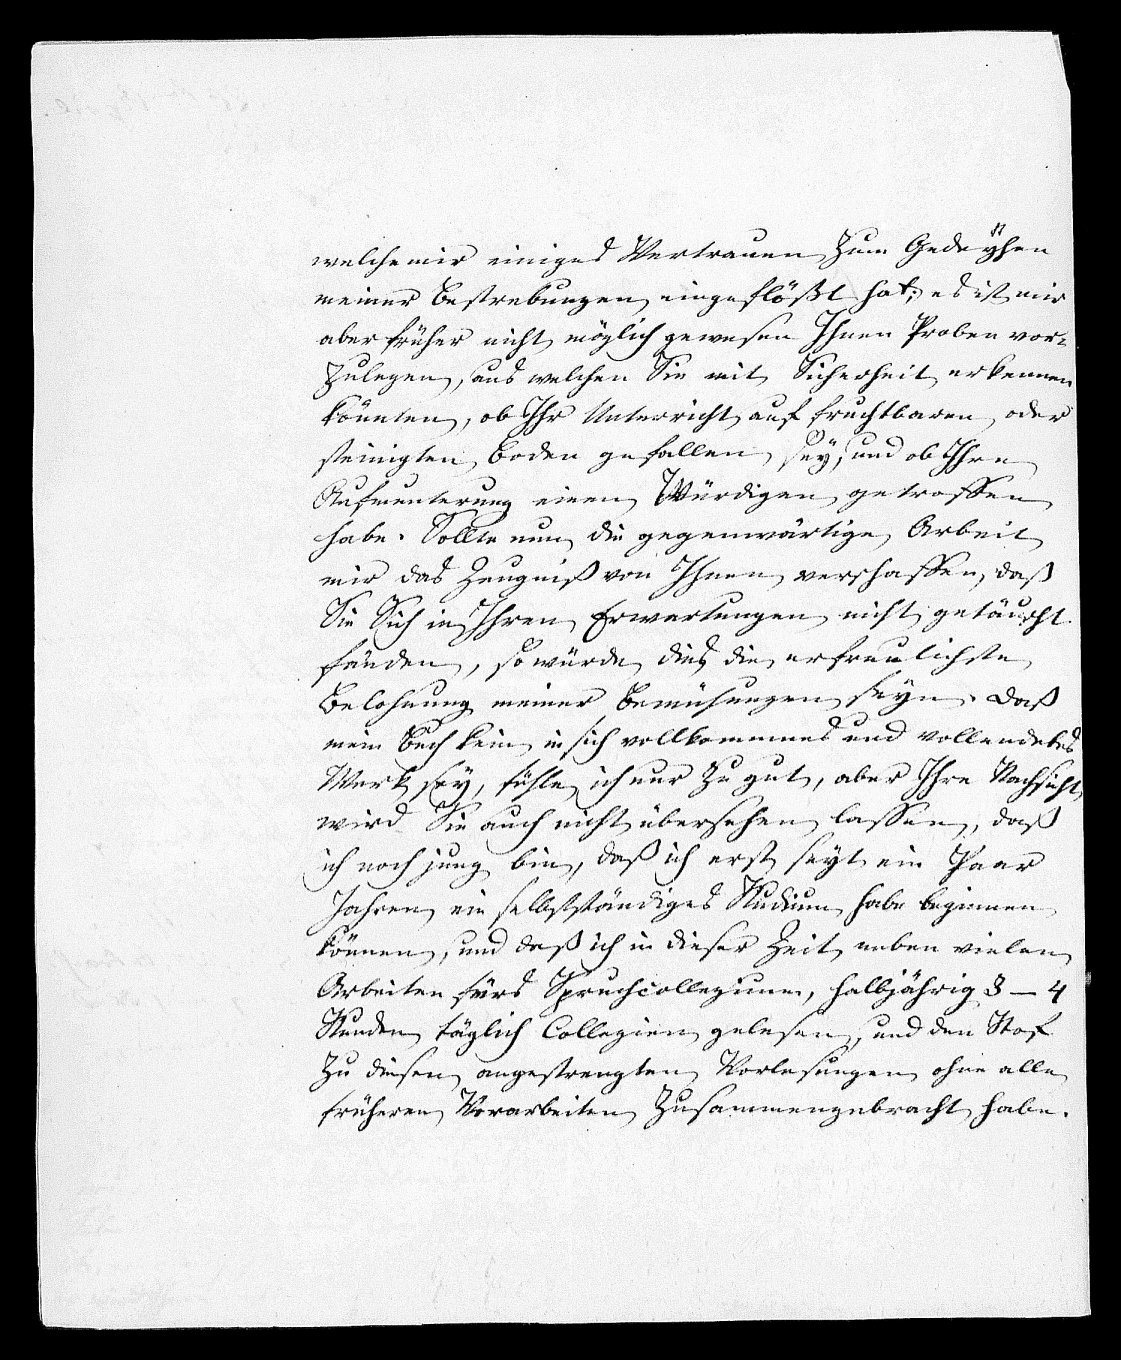 welche mir einiges Vertrauen zum Gedeyhen
meiner Bestrebungen eingeflößt hat; es ist mir
aber früher nicht möglich gewesen Ihnen Proben vor-
zulegen, aus welchen Sie mit Sicherheit erkennen
könnten, ob Ihr Unterricht auf fruchtbaren oder
steinigten Boden gefallen sey, und ob Ihre
Aufmunterung einen Würdigen getroffen
habe. Sollte nun die gegenwärtige Arbeit
mir das Zeugniß von Ihnen verschaffen, daß
Sie Sich in Ihren Erwartungen nicht getäuscht
fänden, so würde dies die erfreulichste
Belohnung meiner Bemühungen seyn. Daß
mein Buch kein in sich vollkommnes und vollendetes
Werk sey, fühle ich nur zu gut, aber Ihre Nachsicht
wird Sie auch nicht übersehen lassen, daß
ich noch jung bin, daß ich erst seyt ein Paar
Jahren ein selbstständiges Studium habe beginnen
können, und daß ich in dieser Zeit neben vielen
Arbeiten fürs Spruchcollegium, halbjährig 3 — 4
Stunden täglich Collegien gelesen, und den Stof
zu diesen angestrengten Vorlesungen ohne alle
früheren Vorarbeiten zusammengebracht habe.